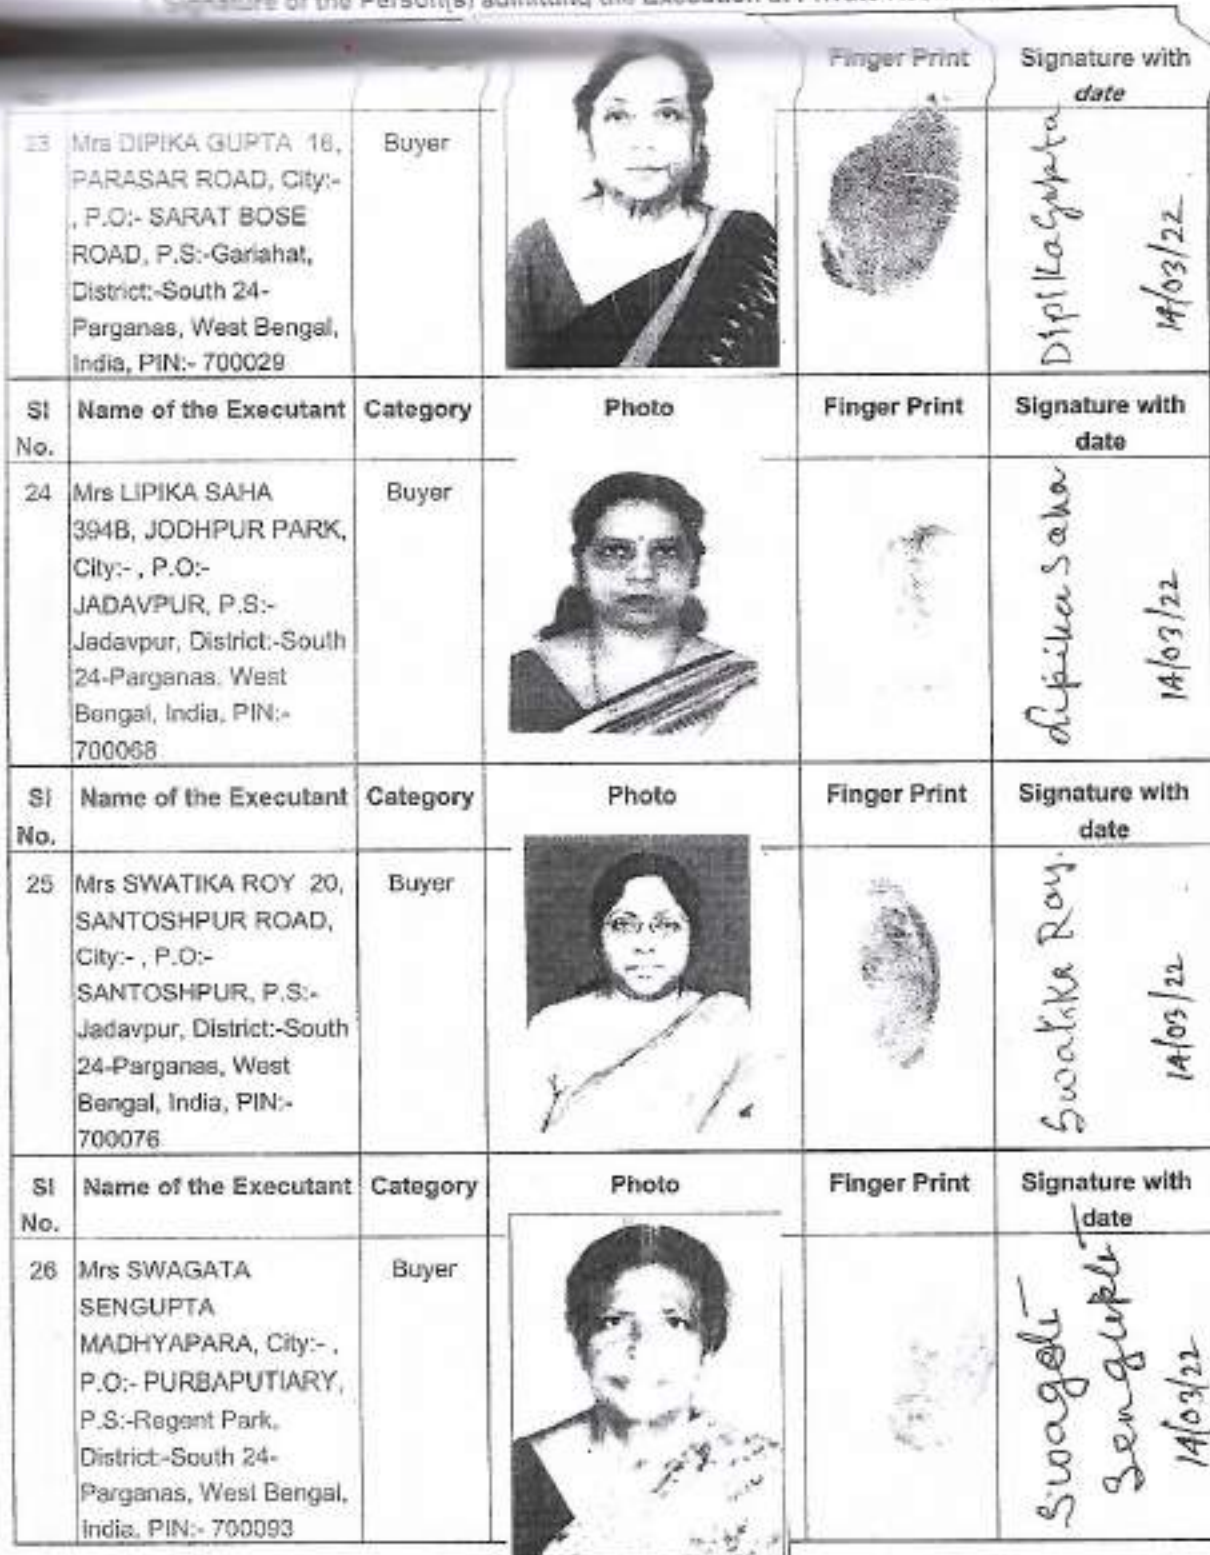 Signature of the Person(s) admitting the Execution at Private
Finger Print
Signature with
date
23
Mrs DIPIKA GUPTA 16,
PARASAR ROAD, City:-
, P.O:- SARAT BOSE
ROAD, P.S:-Gariahat,
District:-South 24-
Parganas, West Bengal,
India, PIN:- 700029
Buyer
Dipika Gupta
14/03/22
Sl
No.
Name of the Executant
Category
Photo
Finger Print
Signature with
date
24
Mrs LIPIKA SAHA
394B, JODHPUR PARK,
City:- , P.O:-
JADAVPUR, P.S:-
Jadavpur, District:-South
24-Parganas, West
Bengal, India, PIN:-
700068
Buyer
Lipika Saha
14/03/22
Sl
No.
Name of the Executant
Category
Photo
Finger Print
Signature with
date
25
Mrs SWATIKA ROY 20,
SANTOSHPUR ROAD,
City:- , P.O:-
SANTOSHPUR, P.S:-
Jadavpur, District:-South
24-Parganas, West
Bengal, India, PIN:-
700076
Buyer
Swatika Roy.
14/03/22
Sl
No.
Name of the Executant
Category
Photo
Finger Print
Signature with
date
26
Mrs SWAGATA
SENGUPTA
MADHYAPARA, City:- ,
P.O:- PURBAPUTIARY,
P.S:-Regent Park,
District:-South 24-
Parganas, West Bengal,
India, PIN:- 700093
Buyer
Swagata
Sengupta
14/03/22